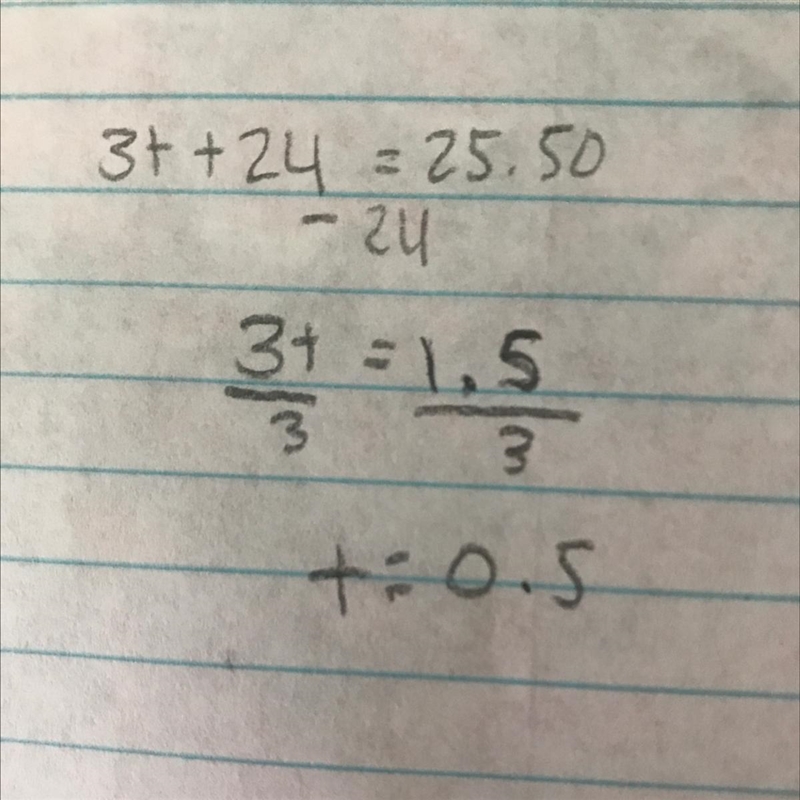 3t + 24 = 25.50
- 24
3t = 1.5
3 3
t = 0.5